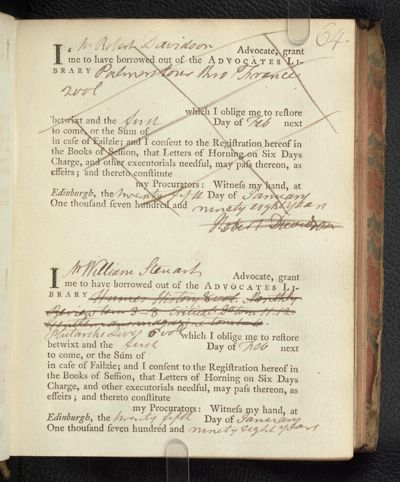 64
I, Mr Robert Davidson Advocate, grant
me to have borrowed out of the ADVOCATES LI-
BRARY Palmerstone thro' France
2 vol
which I oblige me to reſtore
betwixt and the first Day of Feb next
to come, or the Sum of
in caſe of Failzie; and I conſent to the Regiſtration hereof in
the Books of Seſſion, that Letters of Horning on Six Days
Charge, and other executorials needful, may paſs thereon, as
effeirs; and thereto conſtitute
my Procurators: Witneſs my hand, at
Edinburgh, the twenty fifth Day of January
One thouſand ſeven hundred and ninety eight years
Robert Davidson
I, Mr William Steuart Advocate, grant
me to have borrowed out of the ADVOCATES LI-
BRARY Humes History 8 vol. Monthly
Review tom 3-8 Critical Do tom 11.12
Gentlemans magazine tom
Plutarchs Lives 6 vol which I oblige me to reſtore
betwixt and the first Day of Feb next
to come, or the Sum of
in caſe of Failzie; and I conſent to the Regiſtration hereof in
the Books of Seſſion, that Letters of Horning on Six Days
Charge, and other executorials needful, may paſs thereon, as
effeirs; and thereto conſtitute
my Procurators: Witneſs my hand, at
Edinburgh, the twenty fifth Day of January
One thouſand ſeven hundred and ninety eight years